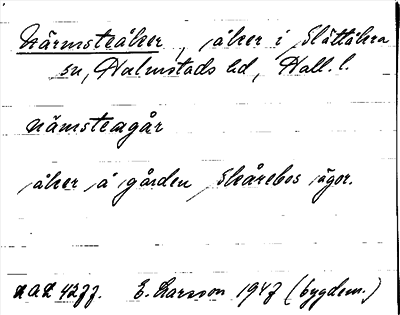 Närmsteåker, åker i Slättåkra
sn, Halmstads hd, Hall. l.
nämsteagår
åker å gården Skårebos ägor.
E. Larsson 1947 (bygdem.)